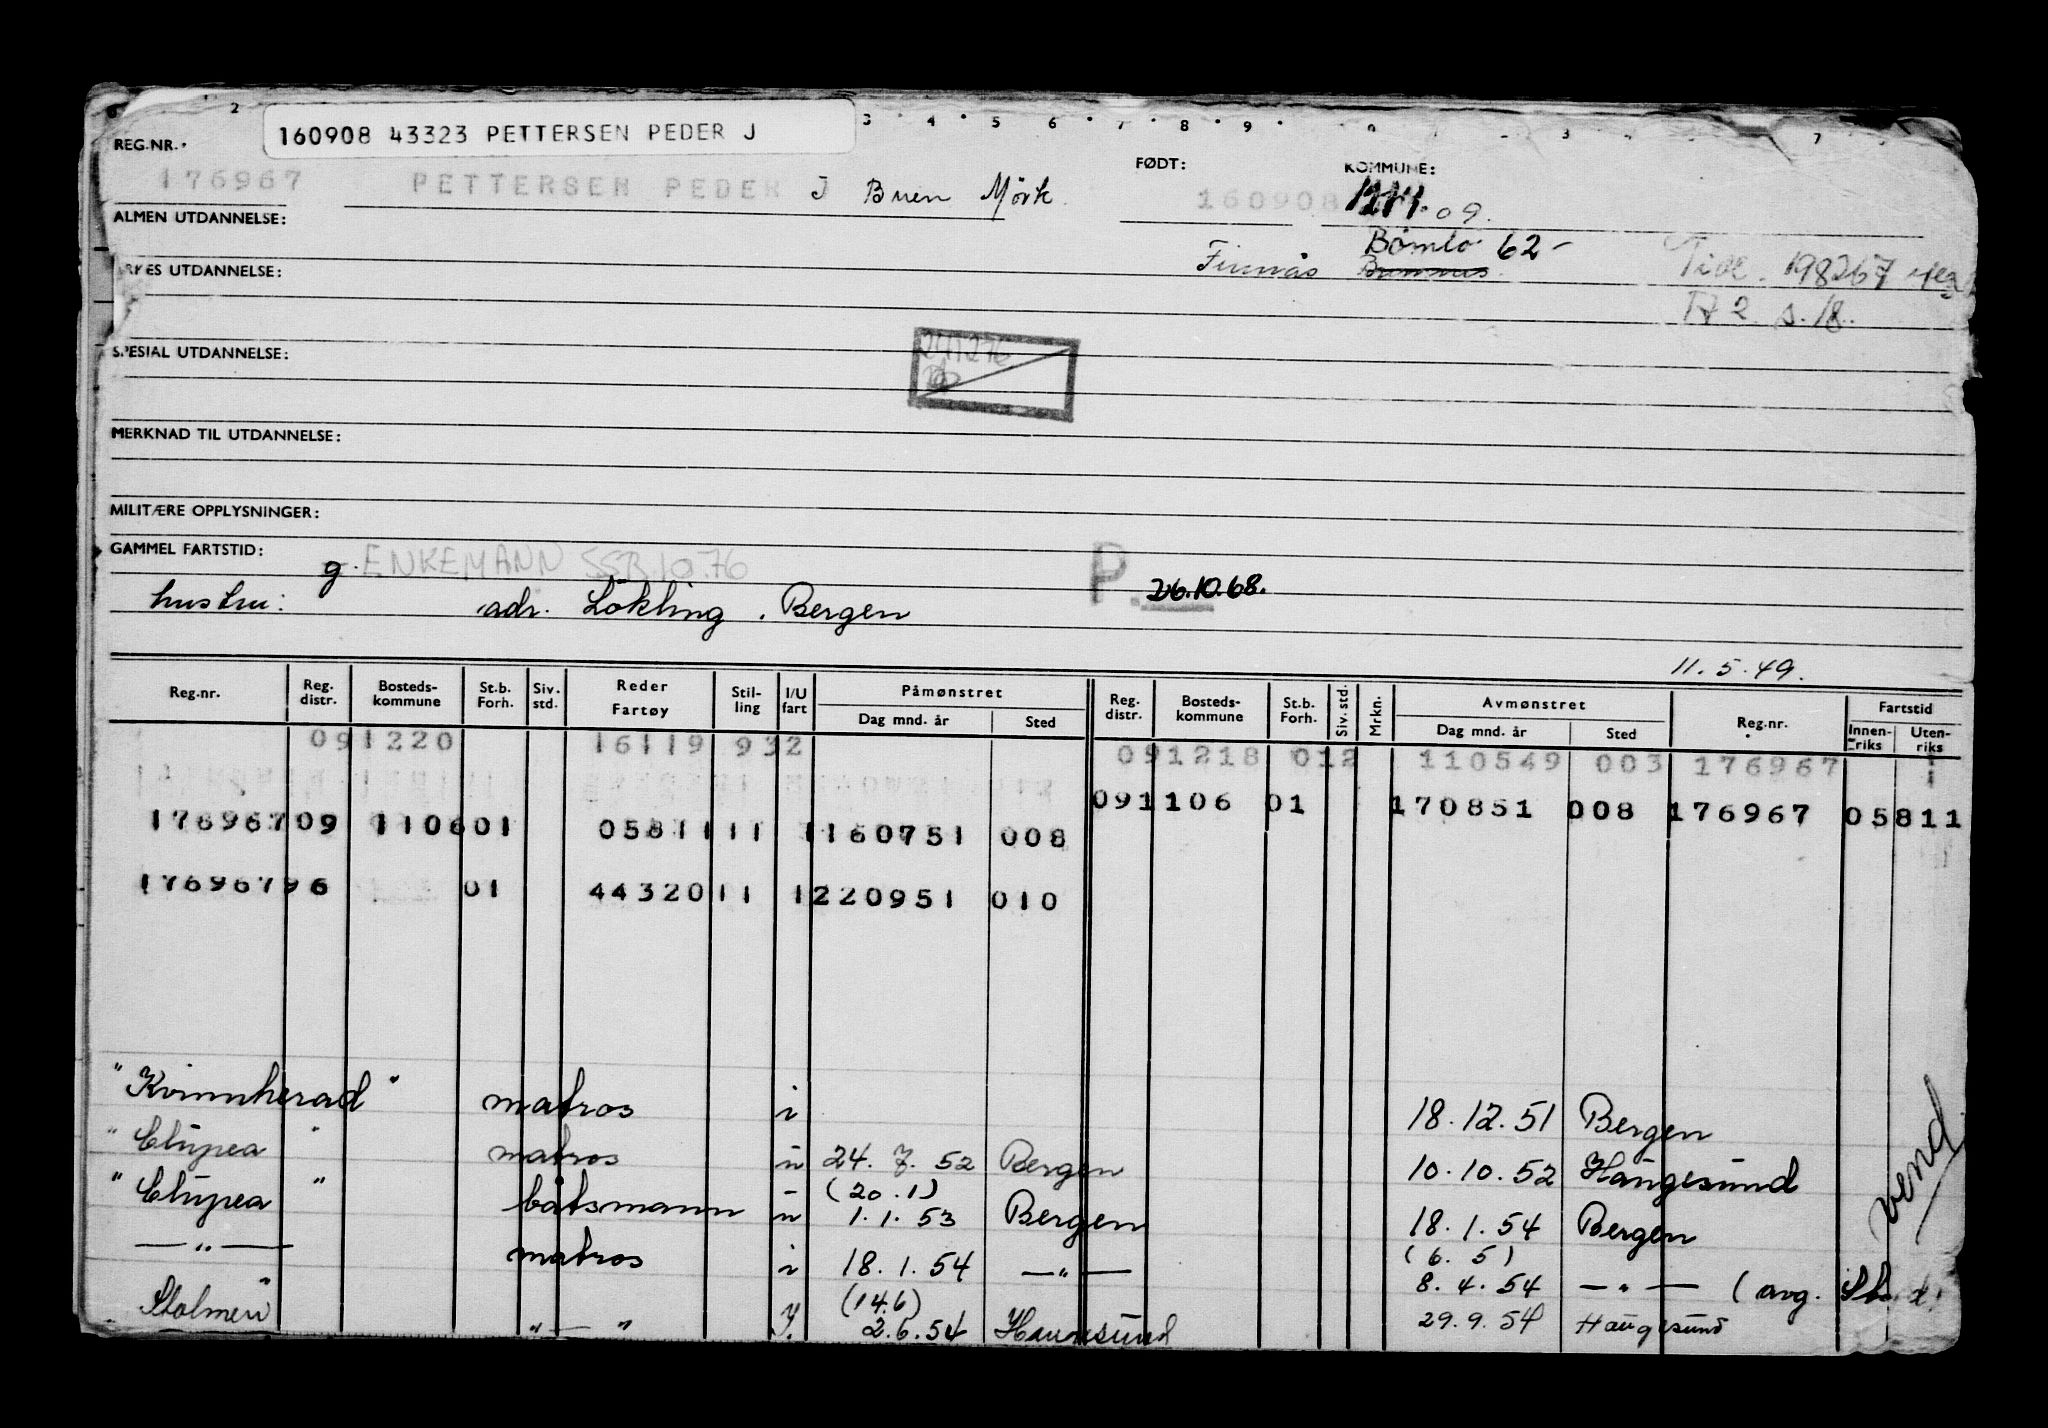 160908 43323 PETTERSEN PEDER J
REG.NR.
176967 PETTERSEN PEDER J Buen Mörk
FØDT:
160908
KOMMUNE:
09.
ALMEN UTDANNELSE:
Bömlo 62-
Finnås
YRKES UTDANNELSE:
198267
s. 18.
SPESIAL UTDANNELSE:
MERKNAD TIL UTDANNELSE:
MILITÆRE OPPLYSNINGER:
GAMMEL FARTSTID:
g. ENKEMANN SSB.10.76
P. 26.10.68.
hustru: adr. Lökling, Bergen
11.5.49.
Reg.nr. Reg. distr. Bosteds-kommune St.b. Forh. Siv. std. Reder Fartøy Stil-ling I/U fart Påmønstret Dag mnd. år Sted Reg. distr. Bosteds-kommune St.b. Forh. Siv. std. Mrkn. Avmønstret Dag mnd. år Sted Reg.nr. Fartstid Innen-riks Uten-riks
091220 16119 932 091218 012 110549 003 176967
091106 01 170851 008 176967 05811
17696709 110601 0581111 1160751 008
17696796 01 4432011 1220951 010
"Kvinnherad" matros i 18.12.51 Bergen
"Clupea" matros u 24.7.52 Bergen 10.10.52 Haugesund
(20.1)
"Clupea" båtsmann u 1.1.53 Bergen 18.1.54 Bergen
(6.5)
—"— matros i 18.1.54 —"— 8.4.54 —"— (avg.
(14.6)
Stolmen "—" 2.6.54 Haugesund 29.9.54 Haugesund
vend